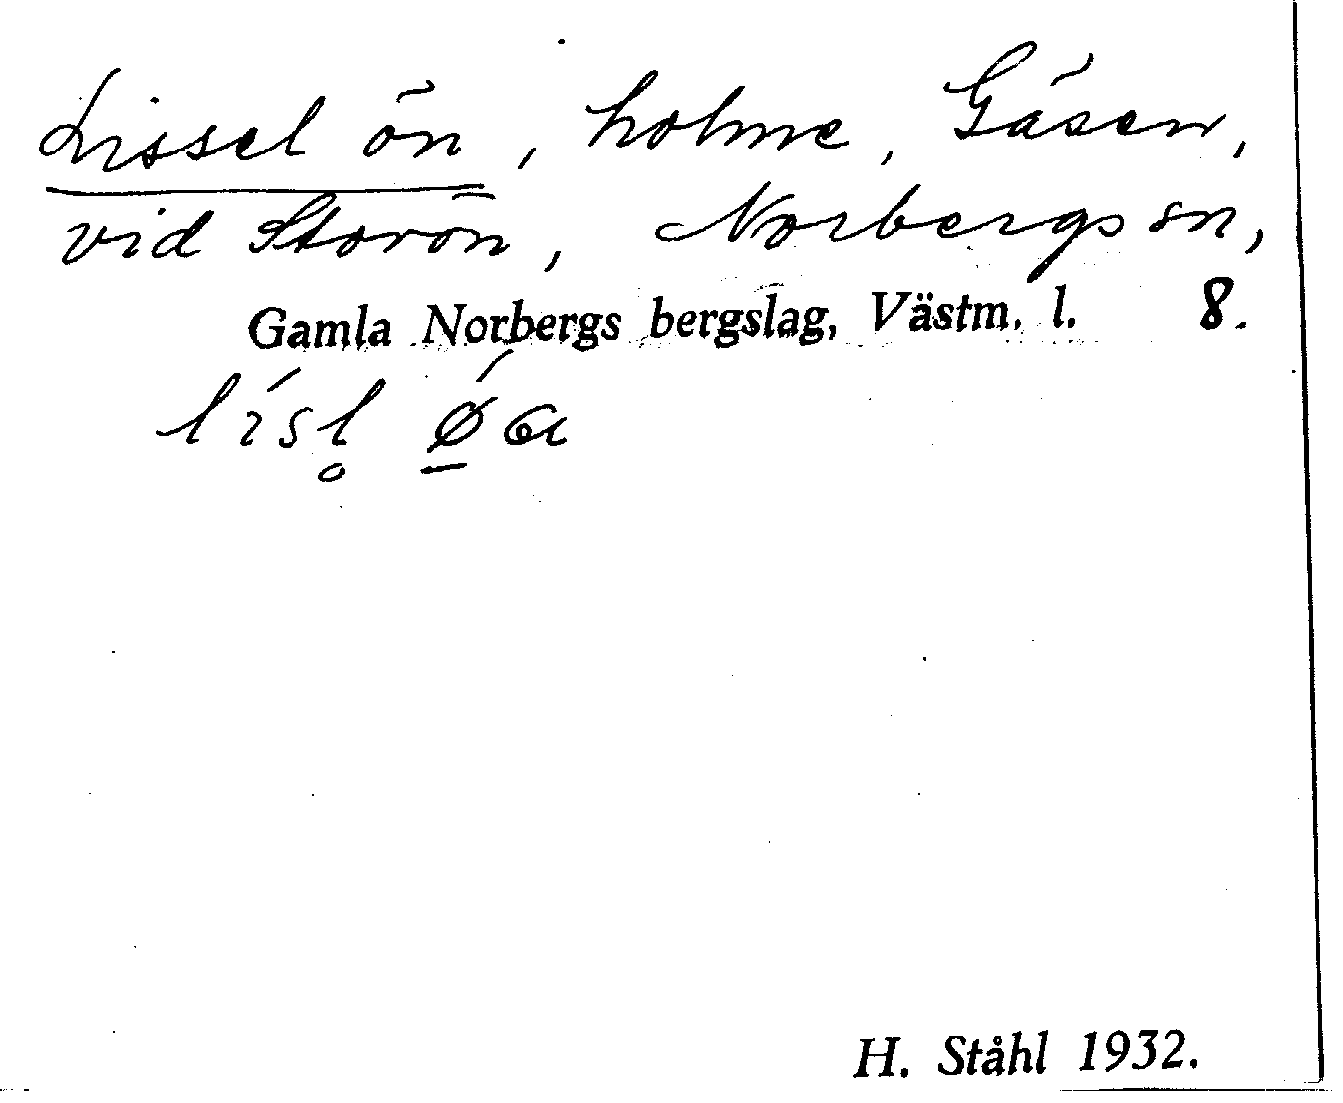 Lissel ön, holme, Gäsen,
vid Storön, Norbergs sn,
Gamla Norbergs bergslag, Västm. l. 8.
H. Ståhl 1932.